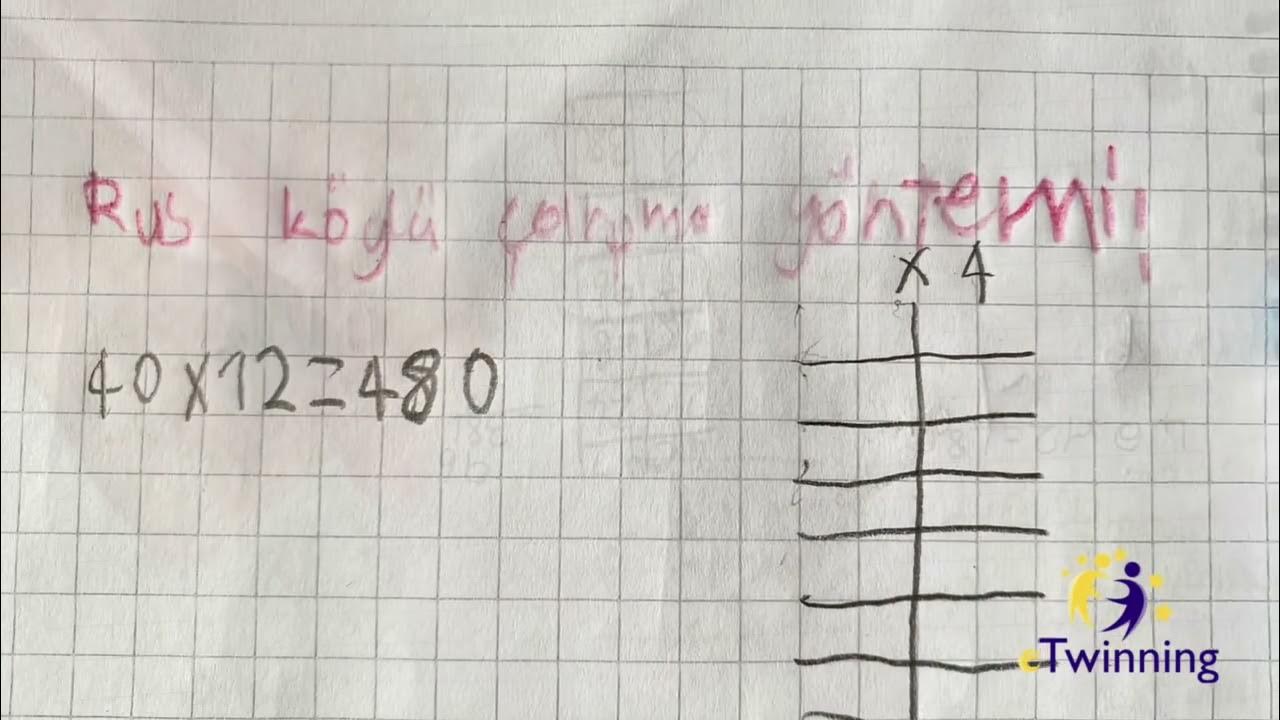 Rus köylü çarpma yöntemi!
x 4
40x12=480
eTwinning